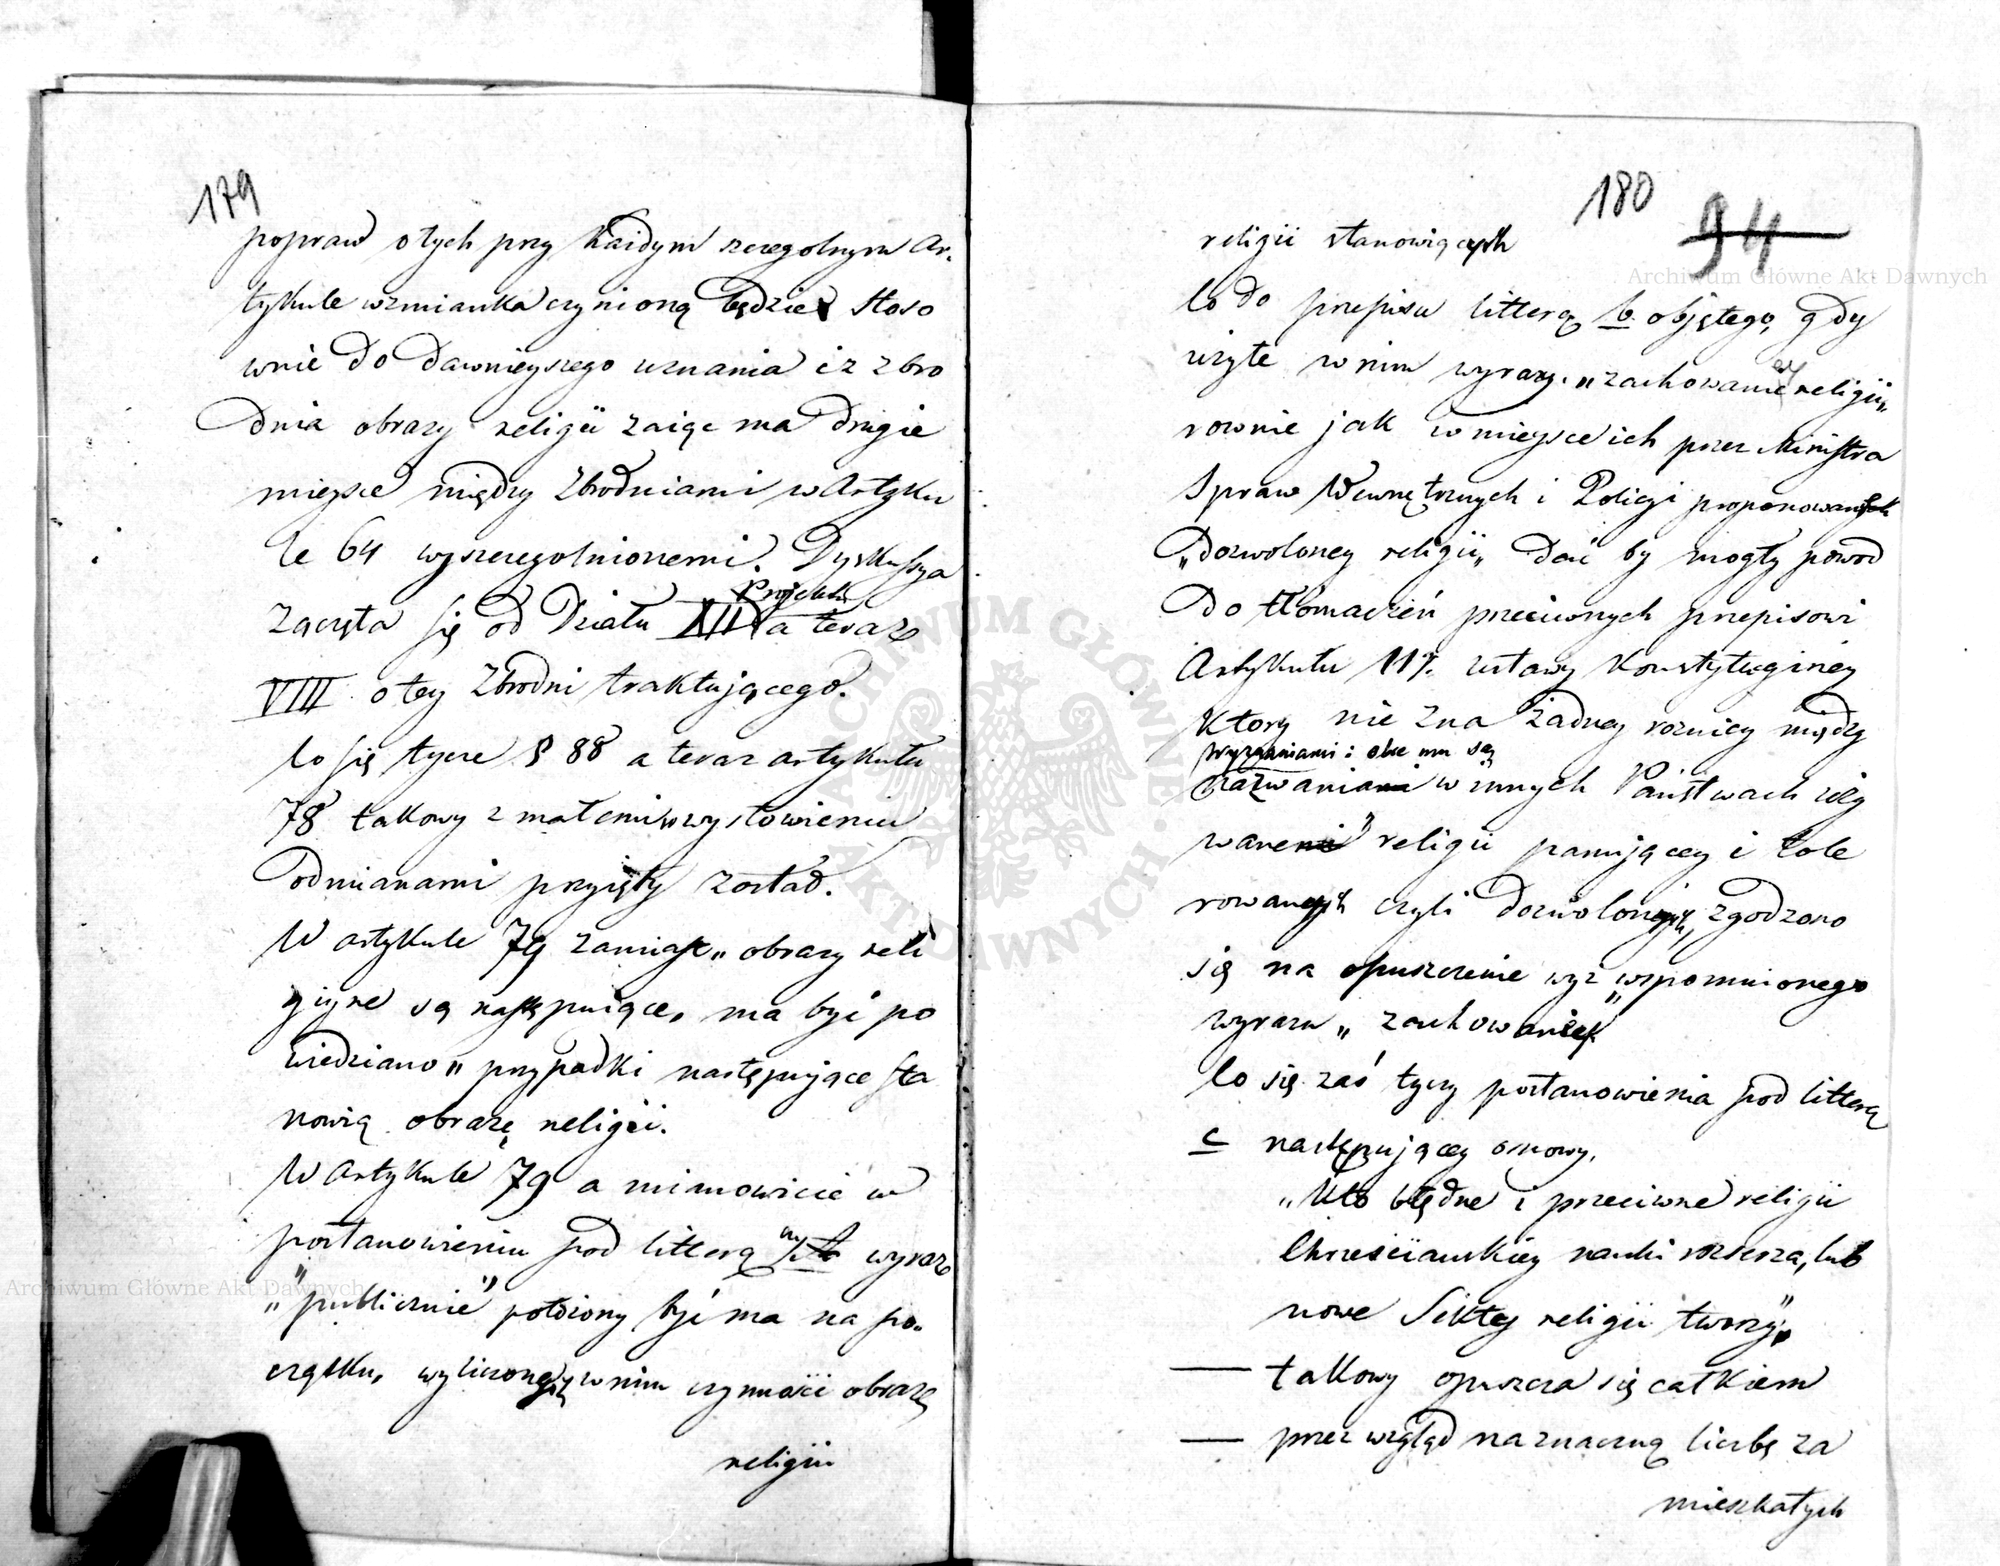 179
popraw o tych przy każdym szczegolnym Ar-
tykule wzmianka czynioną będzie Stoso
wnie do dawnieyszego uznania iz zbro
dnia obrazy religii zaiąc ma drugie
mieysce między Zbrodniami w Artyku
le 64 wyszczegolnionemi. Dyskussya
Zaczęta się od Działu XII Projektu a teraz
VIII o tey Zbrodni traktującego.
Co się tycze § 88 a teraz artykułu
78 takowy z małemi w wysłowieniu
odmianami przyięty został.
W artykule 79 zamiast „obrazy reli
giyne są następuiące, ma być po
wiedziano „przypadki następujące sta
nowią obrazę religii.
W Artykule 79 a mianowicie w
postanowieniu pod litterą wyraz
„publicznie" położony być ma na po-
czątku, wyliczonych w nim czynności obrazę
religii
180
94
religii stanowiących
Co do przepisu litterą b. objętego, gdy
użyte w nim wyrazy „zachowaney religii„
rownie jak w mieysce ich przez Ministra
Spraw Wewnętrznych i Policyi proponowane
„dozwoloney religii„ dać by mogły powod
do tłomaczeń przeciwnych przepisowi
Artykułu 11g. ustawy Konstytucyiney
Ktory nie zna żadney roznicy między
Wyznaniami: obce mu są
nazwania w innych Państwach uży
wane religii panującey i tole
rowanych czyli dozwolonych, zgodzono
się na opuszczenie wyż wspomnionego
wyrazu „zachowaney"
Co się zaś tyczy postanowienia pod litterą
c następującey osnowy.
„Kto błędne i przeciwne religii
Chrześciianskiey nauki rozszerza, lub
nowe Sekty religii tworzy"
— takowy opuszcza się całkiem
— przez wzgląd na znaczną liczbę za
mieszkałych
Archiwum Główne Akt Dawnych
Archiwum Główne Akt Dawnych
ARCHIWUM GŁÓWNE AKT DAWNYCH